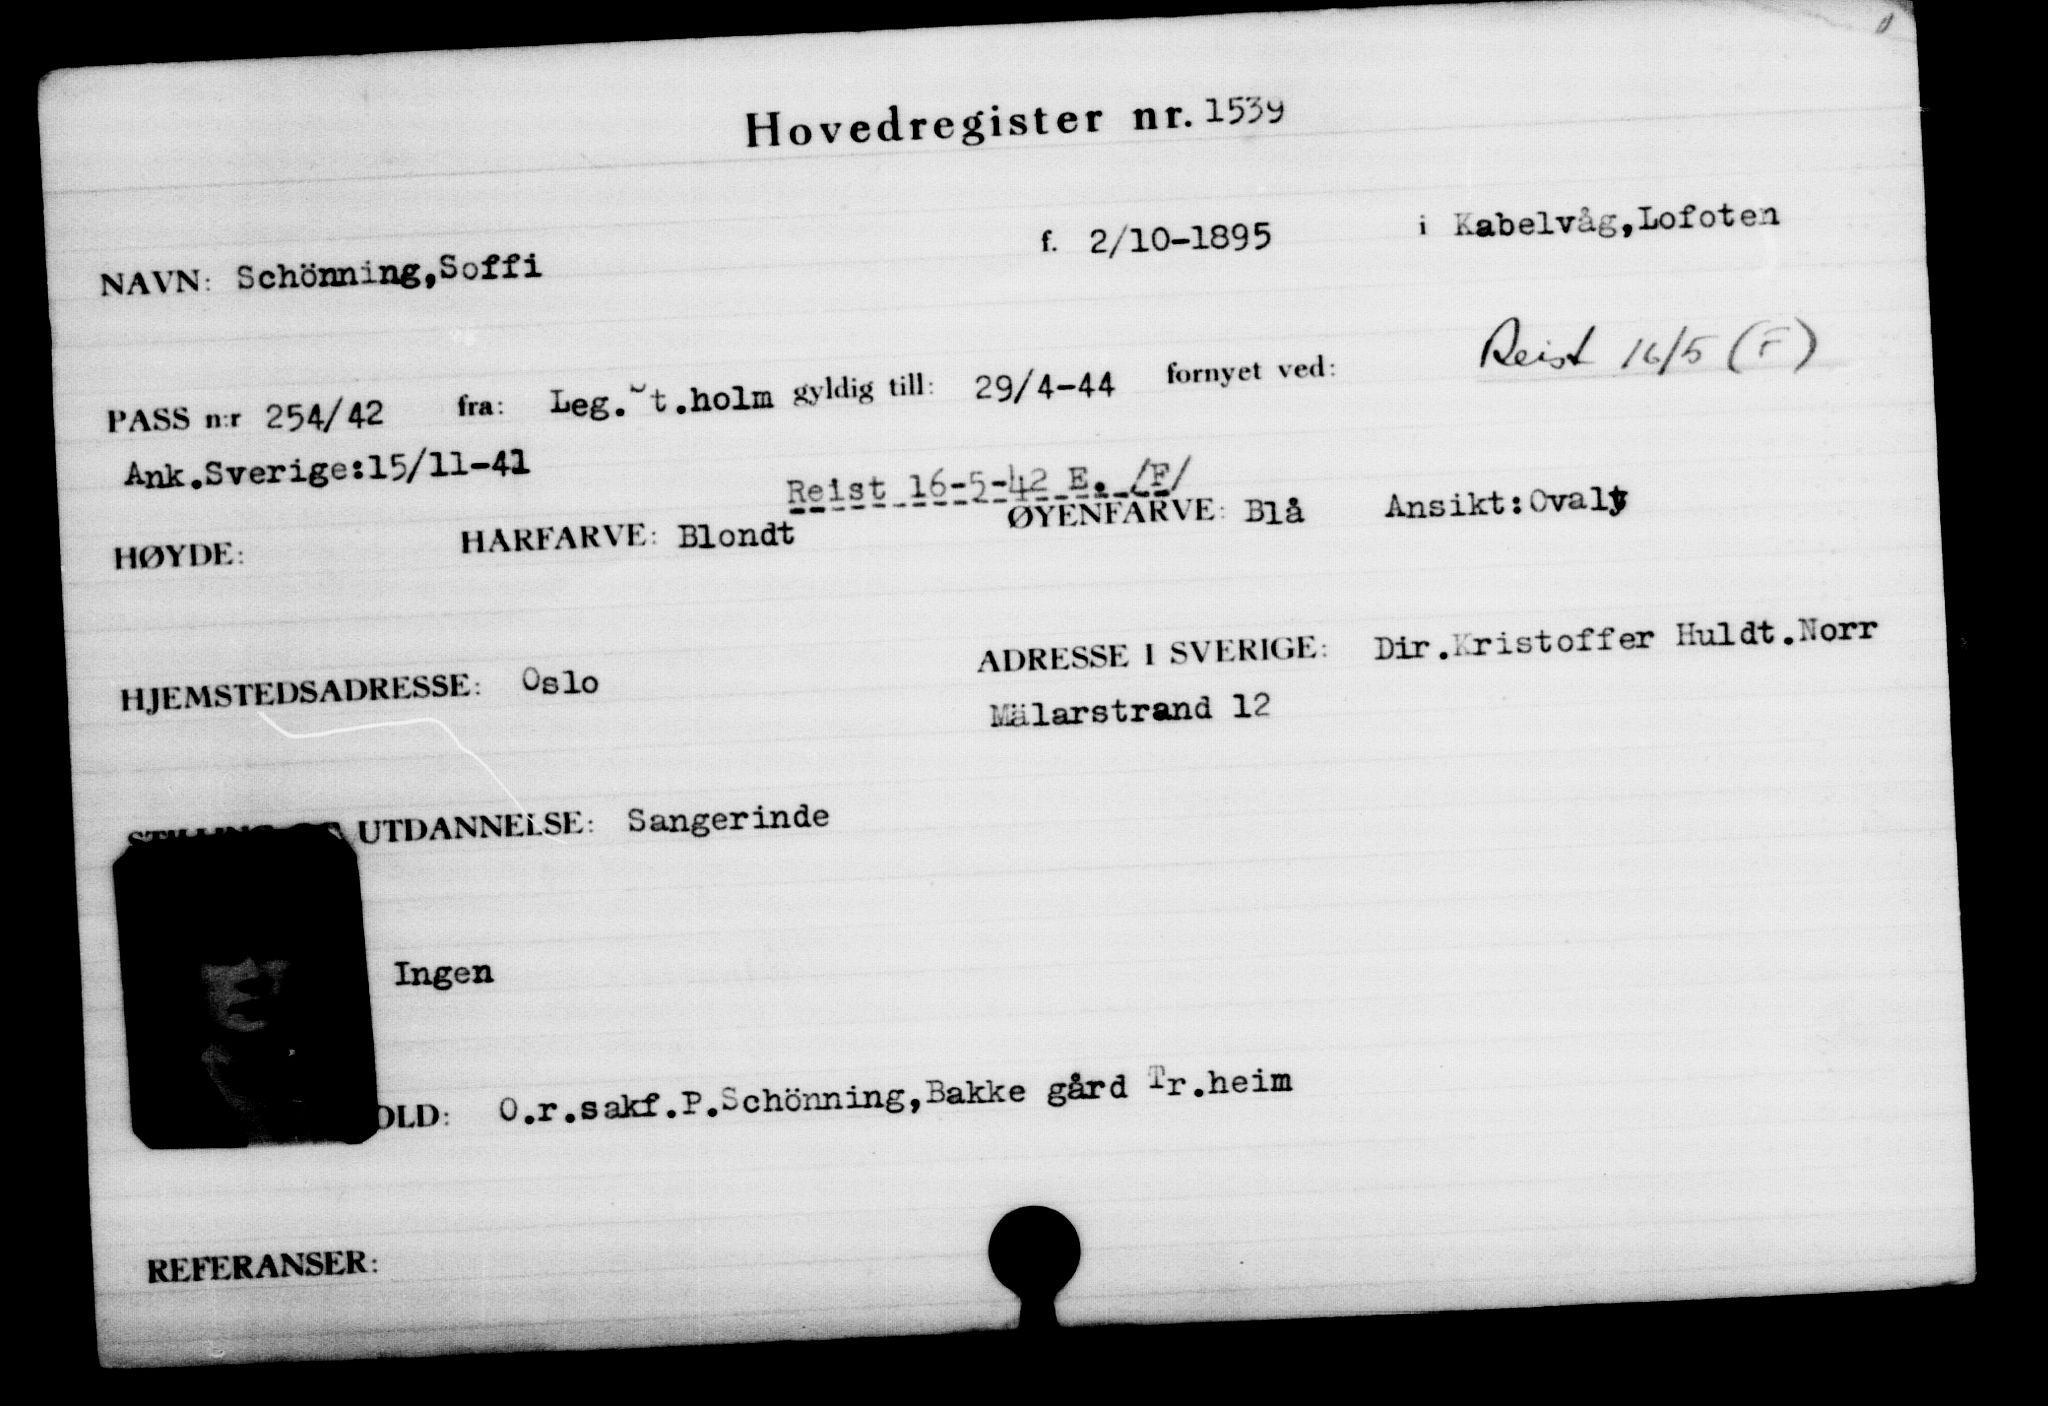 Hovedregister nr. 1539
NAVN: Schönning,Soffi f. 2/10-1895 i Kabelvåg,Lofoten
Reist 16/5 (F)
PASS n:r 254/42 fra: Leg.St.holm gyldig till: 29/4-44 fornyet ved:
Ank.Sverige:15/11-41
Reist 16-5-42 E. /F/
HØYDE: HÅRFARVE: Blondt ØYENFARVE: Blå Ansikt:Ovalt
HJEMSTEDSADRESSE: Oslo ADRESSE I SVERIGE: Dir.Kristoffer Huldt.Norr
Mälarstrand 12
STILLING OG UTDANNELSE: Sangerinde
Ingen
OLD: O.r.sakf.P.Schönning,Bakke gård Tr.heim
REFERANSER: